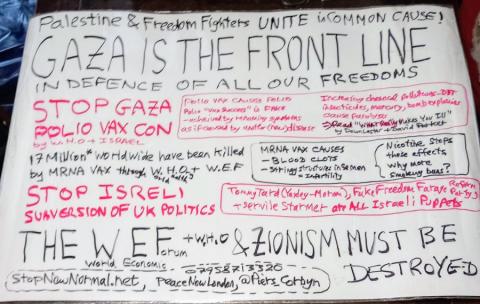 Palestine & Freedom Fighters UNITE in COMMON CAUSE!
GAZA IS THE FRONT LINE
IN DEFENCE OF ALL OUR FREEDOMS
STOP GAZA
POLIO VAX CON
by W.H.O + ISRAEL
POLIO VAX CAUSES POLIO
Polio "Vax Success" is FAKE
- achieved by renaming symptoms
as if caused by another (new) disease
Increasing chemical pollutions - DDT
insecticides, mercury, bomb explosives
cause paralysis
Read "What Really Makes You ILL"
by Dawn Lester + David Parker
17 Million* worldwide have been killed
by MRNA VAX through W.H.O + W.E.F
MRNA VAX CAUSES
- BLOOD CLOTS
- Stringy structures in Semen
= Infertility
Nicotine stops
these effects
why more
smoking bans?
STOP ISRELI
SUBVERSION OF UK POLITICS
Tommy Tard (Yaxley-Moron), Fake Freedom Farage Reform Party
+ servile Starmer are ALL Israeli Puppets
THE W E F + W.H.O & ZIONISM MUST BE
World Economic Forum
DESTROYED
07958713320
StopNewNormal.net, PeaceNewLondon, @Piers_Corbyn